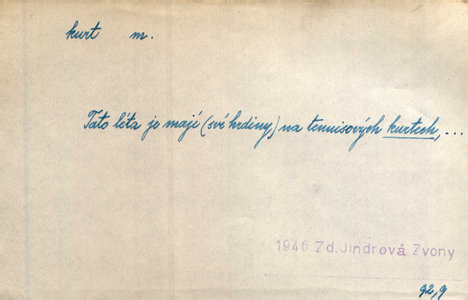 kurt m.
Tato léta je mají (své hrdiny,) na tennisových kurtech, ...
1946 Zd. Jindrová Zvony
92,9